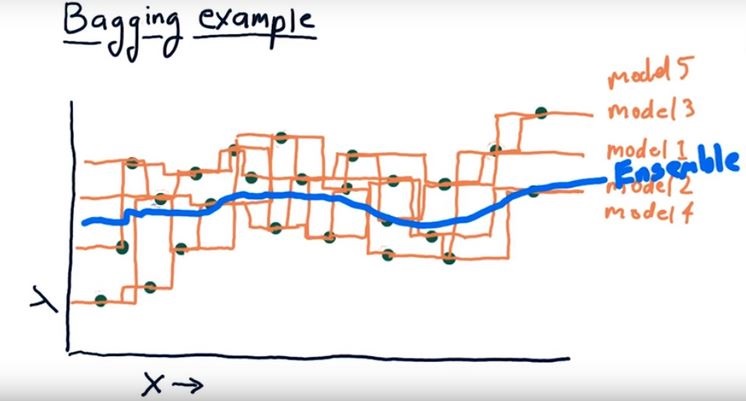 Bagging example
model 5
model 3
model 1
Ensemble
model 2
model 4
Y
X →